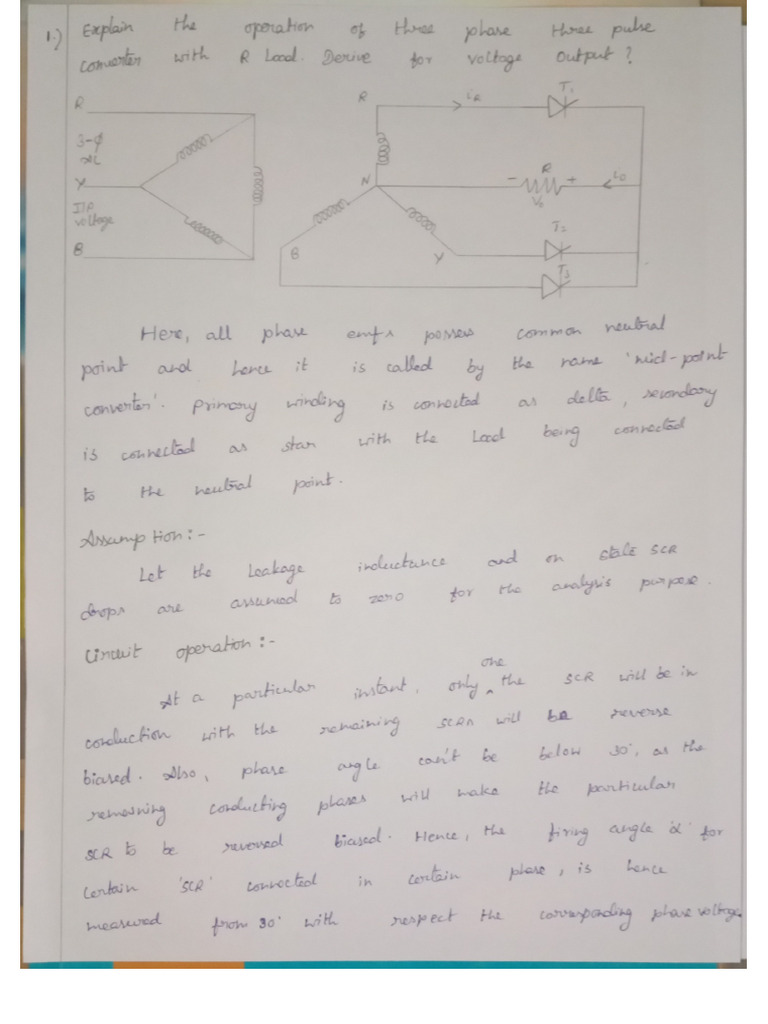 1.) Explain the operation of three phase three pulse
converter with R Load. Derive for voltage output?
R
3-ϕ
Y
I/P
voltage
B
R iR T1
N - R + io
V0
B Y T2
T3
Here, all phase emfs possess common neutral
point and hence it is called by the name 'mid-point
converter'. Primary winding is connected as delta, secondary
is connected as star with the Load being connected
to the neutral point.
Assumption:-
Let the Leakage inductance and on state SCR
drops are assumed to zero for the analysis purpose.
Circuit operation:-
At a particular instant, only one the SCR will be in
conduction with the remaining SCRs will be reverse
biased. Also, phase angle can't be below 30°, as the
remaining conducting phases will make the particular
SCR to be reversed biased. Hence, the firing angle 'α' for
certain 'SCR' connected in certain phase, is hence
measured from 30° with respect the corresponding phase voltage.